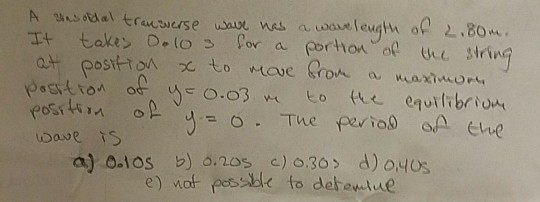 A sinusoidal transverse wave has a wavelength of 2.80m.
It takes 0.10 s for a portion of the string
at position x to move from a maximum
position of y = 0.03 m to the equilibrium
position of y = 0. The period of the
wave is
a) 0.10s b) 0.20s c) 0.30s d) 0.40s
e) not possible to determine